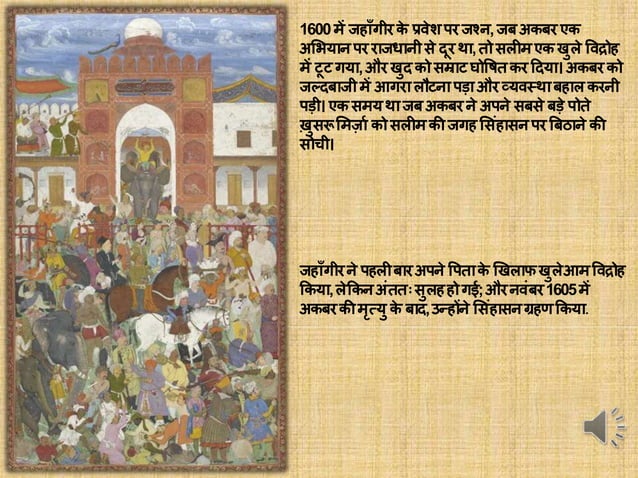 1600 में जहाँगीर के प्रवेश पर जश्न, जब अकबर एक
अभियान पर राजधानी से दूर था, तो सलीम एक खुले विद्रोह
में टूट गया, और खुद को सम्राट घोषित कर दिया। अकबर को
जल्दबाजी में आगरा लौटना पड़ा और व्यवस्था बहाल करनी
पड़ी। एक समय था जब अकबर ने अपने सबसे बड़े पोते
खुसरू मिर्ज़ा को सलीम की जगह सिंहासन पर बिठाने की
सोची।
जहाँगीर ने पहली बार अपने पिता के खिलाफ खुलेआम विद्रोह
किया, लेकिन अंततः सुलह हो गई; और नवंबर 1605 में
अकबर की मृत्यु के बाद, उन्होंने सिंहासन ग्रहण किया.